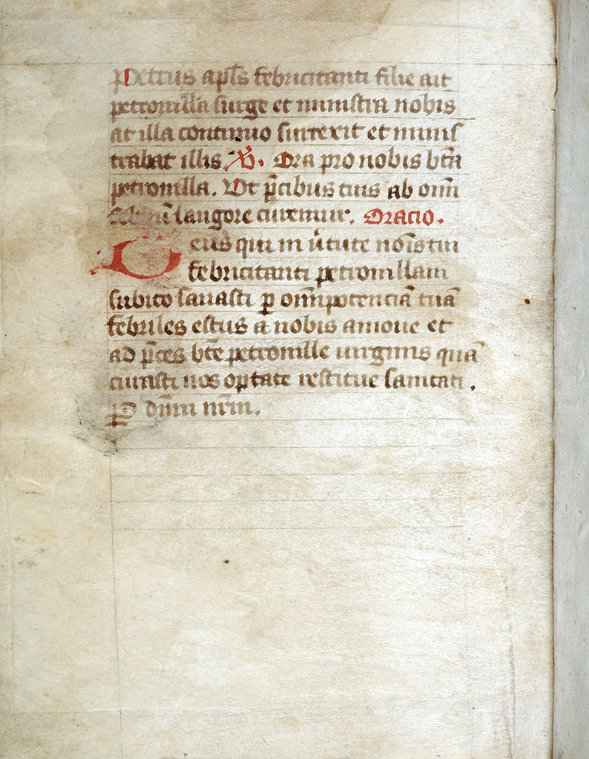 Petrus apl̅s febricitanti filie ait
petronilla surge et ministra nobis
at illa continuo surrexit et minis
trabat illis. V̷. Ora pro nobis bt̅a
petronilla. Ut p̅cibus tuis ab om̅i
langore curemur. Oracio.
Deus qui in u̅tute no̅is tui
febricitanti petronillam
subito sanasti ꝑ om̅ipotencia̅ tua̅
febriles estus a nobis amoue et
ad p̅ces bt̅e petronille uirginis qua̅
curasti nos optate restitue sanitati.
P̲ dn̅m nr̅m.